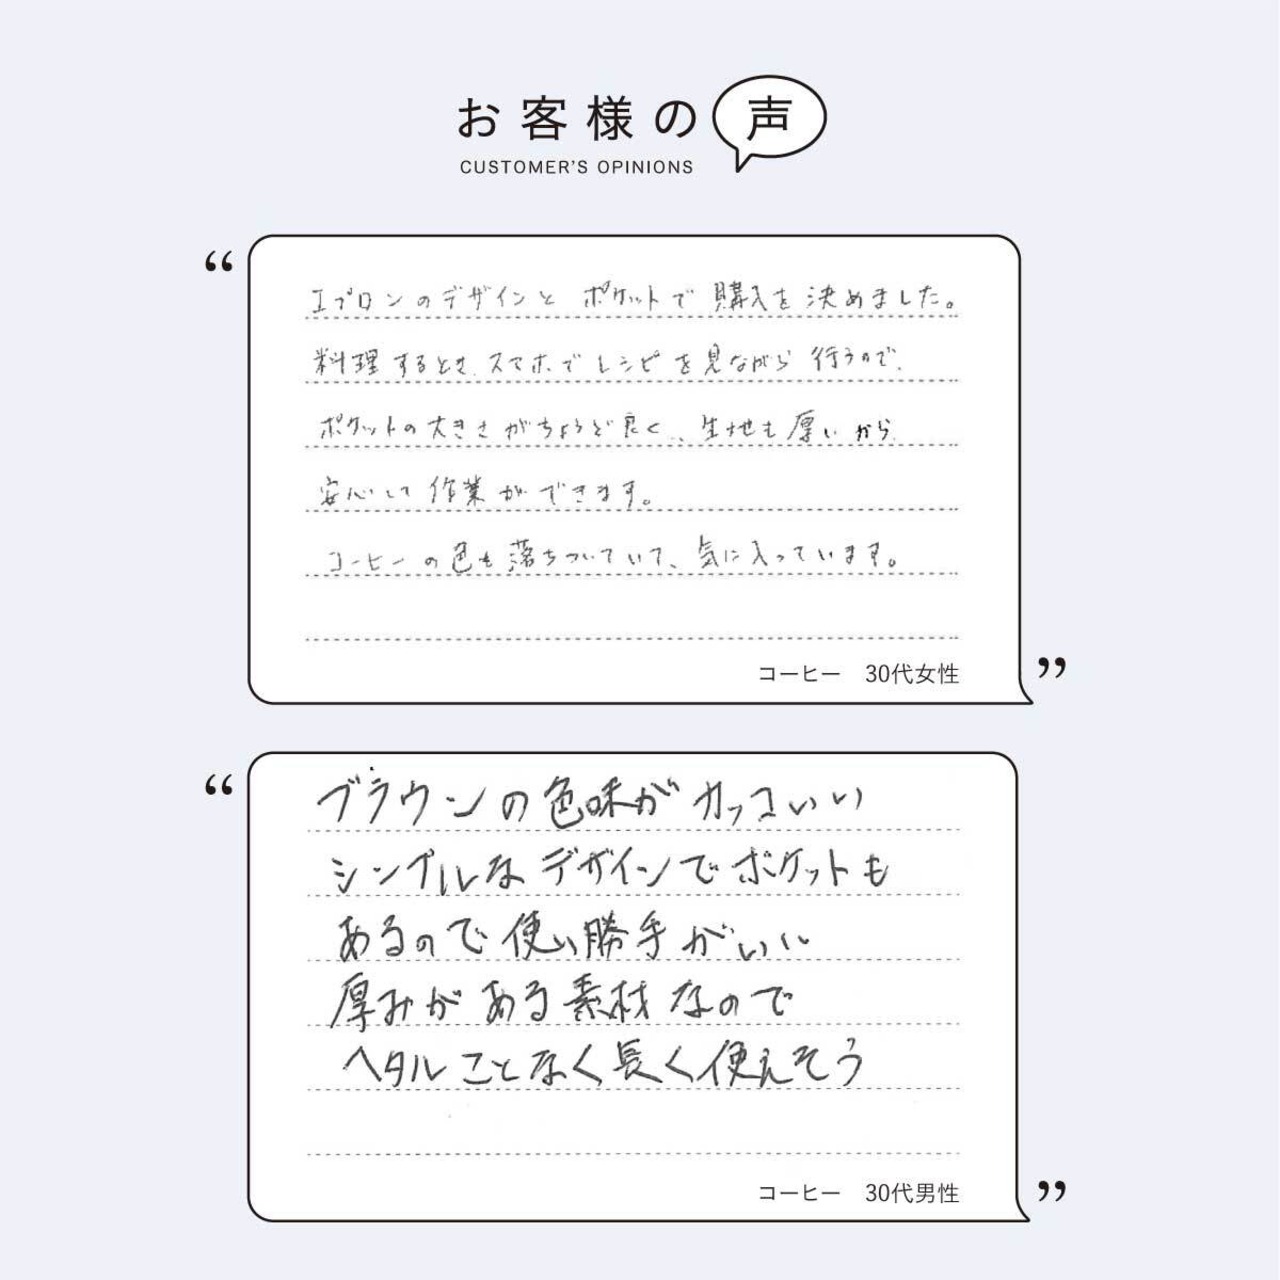 お客様の声
CUSTOMER'S OPINIONS
“
エプロンのデザインと ポケットで 購入を 決めました。
料理するとき、スマホで レシピを見ながら 行うので、
ポケットの大きさがちょうど良く、生地も厚いから
安心して作業ができます。
コーヒーの色も落ちついていて、気に入っています。
コーヒー 30代女性
”
“
ブラウンの色味がカッコいい
シンプルなデザインでポケットも
あるので使い勝手がいい
厚みがある素材なので
ヘタルことなく長く使えそう
コーヒー 30代男性
”